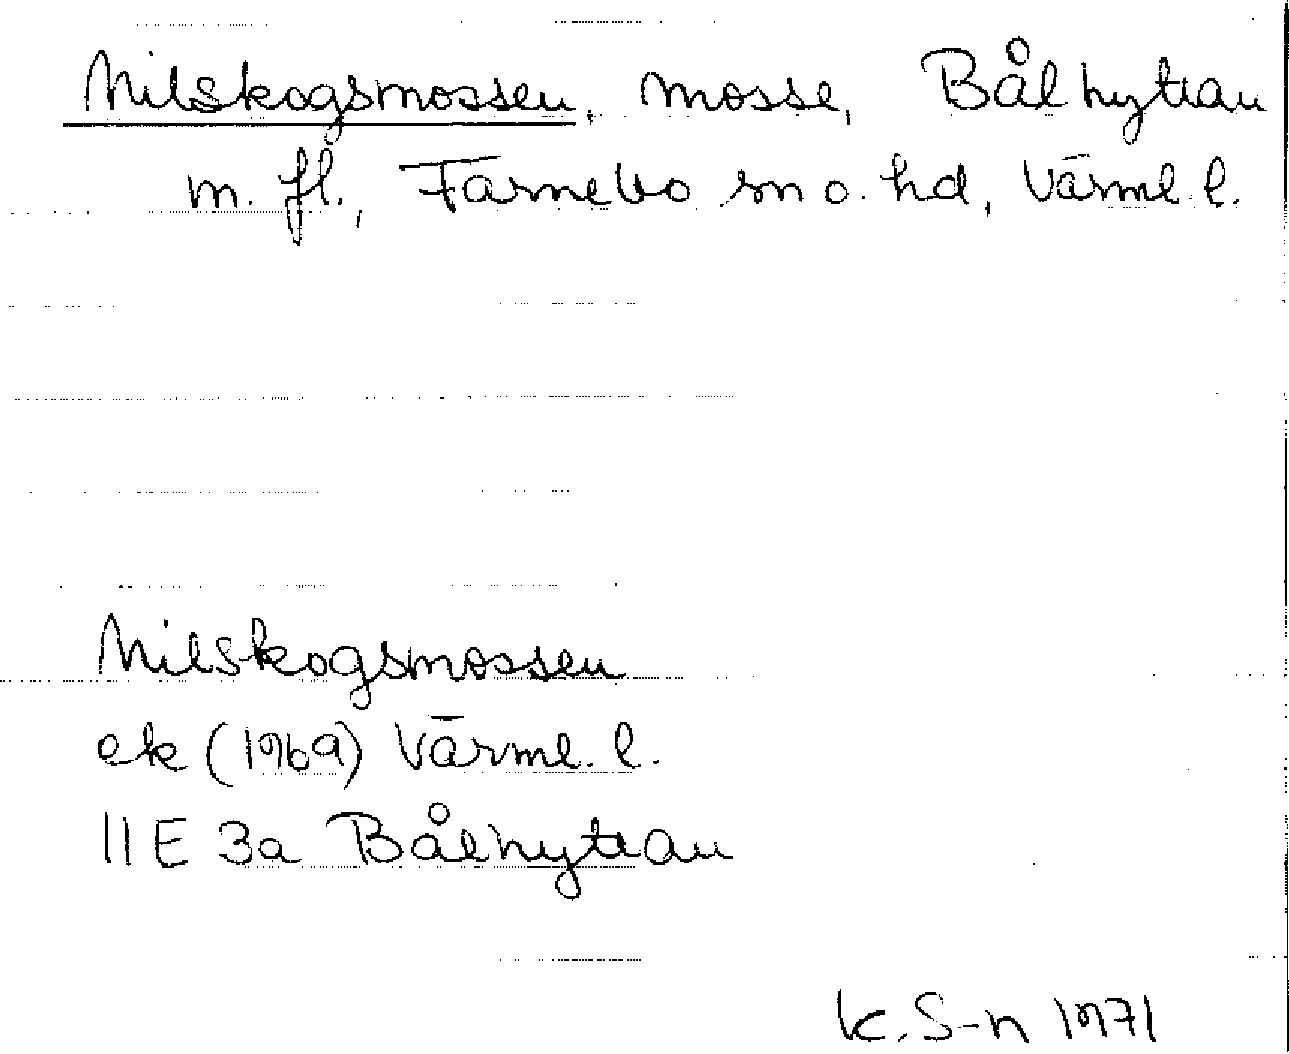 Nilskogsmossen, mosse, Bålhyttan
m. fl., Färnebo sn o. hd, Värml. l.
Nilskogsmossen
ek (1969) Värml. l.
11 E 3a Bålhyttan
K. S-n 1971